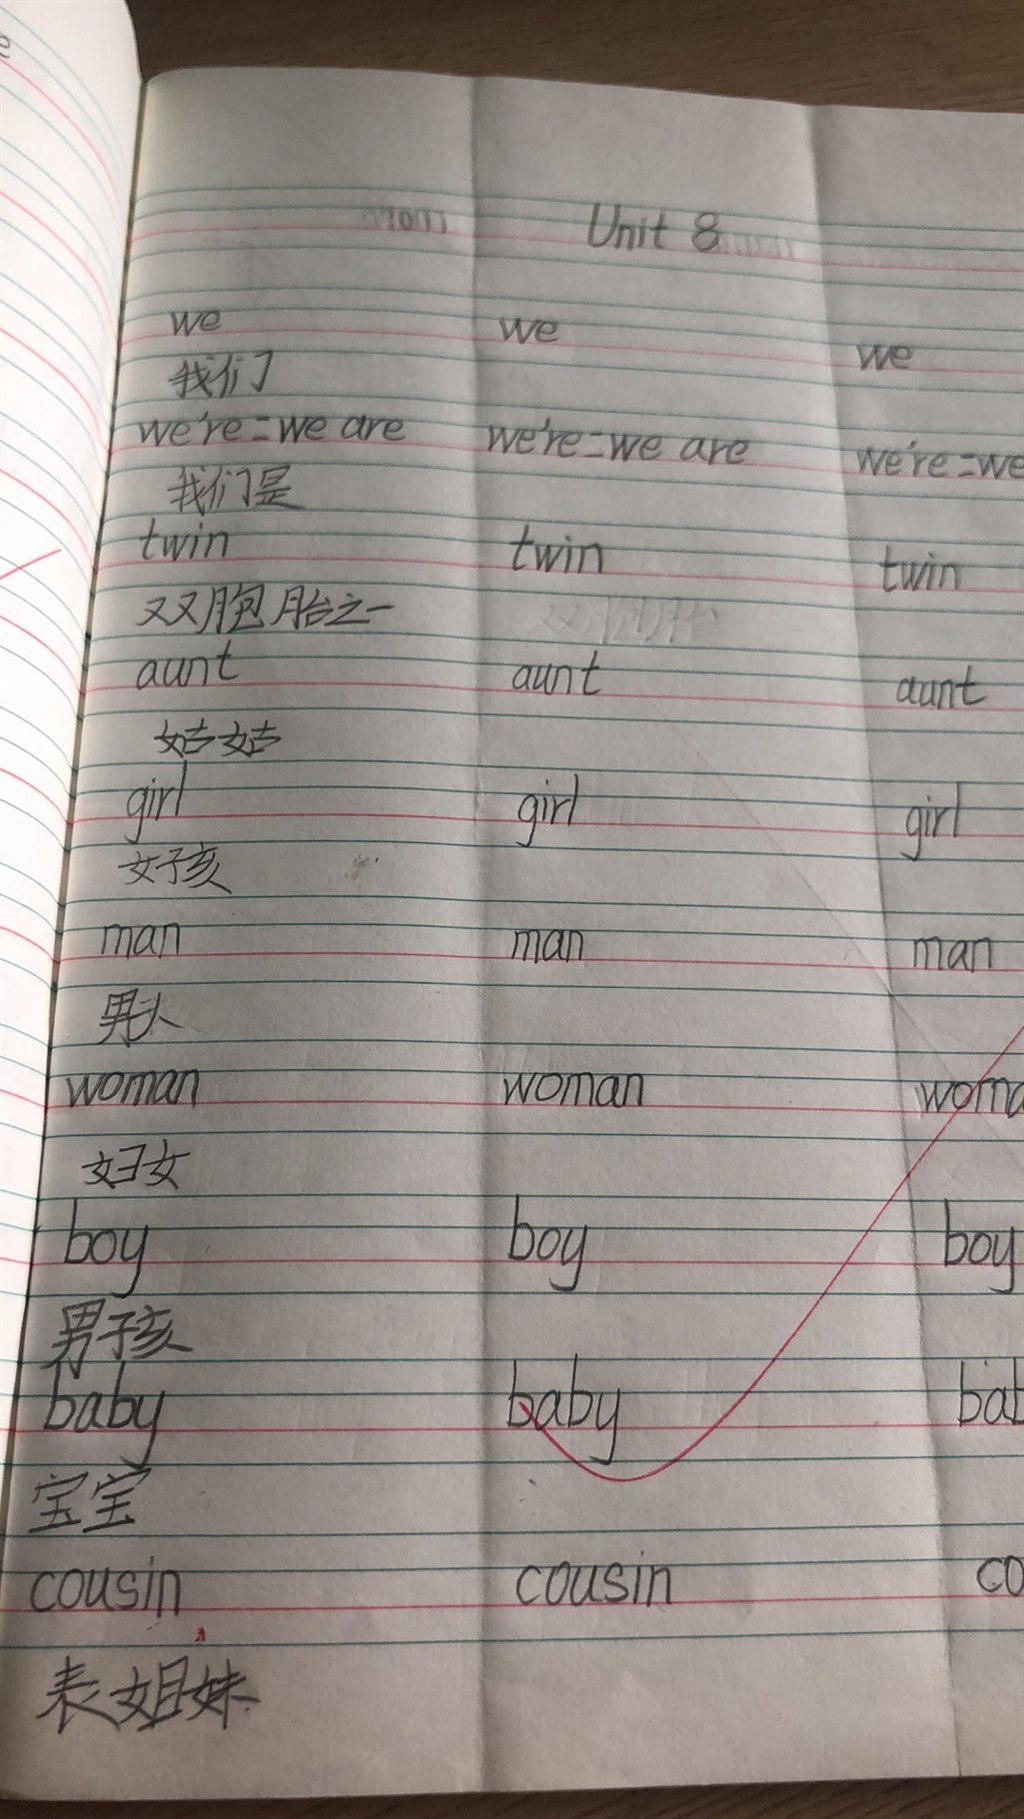 Unit 8
we we we
我们
we're=we are we're=we are we're=we
我们是
twin twin twin
双胞胎之一
aunt aunt aunt
姑姑
girl girl girl
女孩
man man man
男人
woman woman woma
妇女
boy boy boy
男孩
baby baby bab
宝宝
cousin cousin co
表姐妹